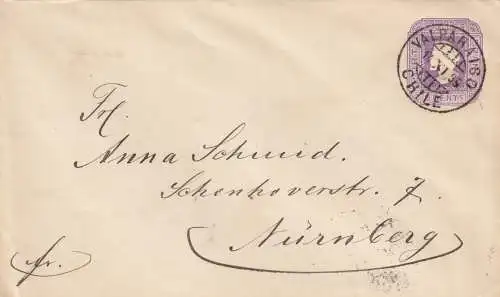 VALPARAISO
CHILE
CENTS
Fr.
Anna Schmid.
Schonhoverstr. 7.
Nürnberg
fr.